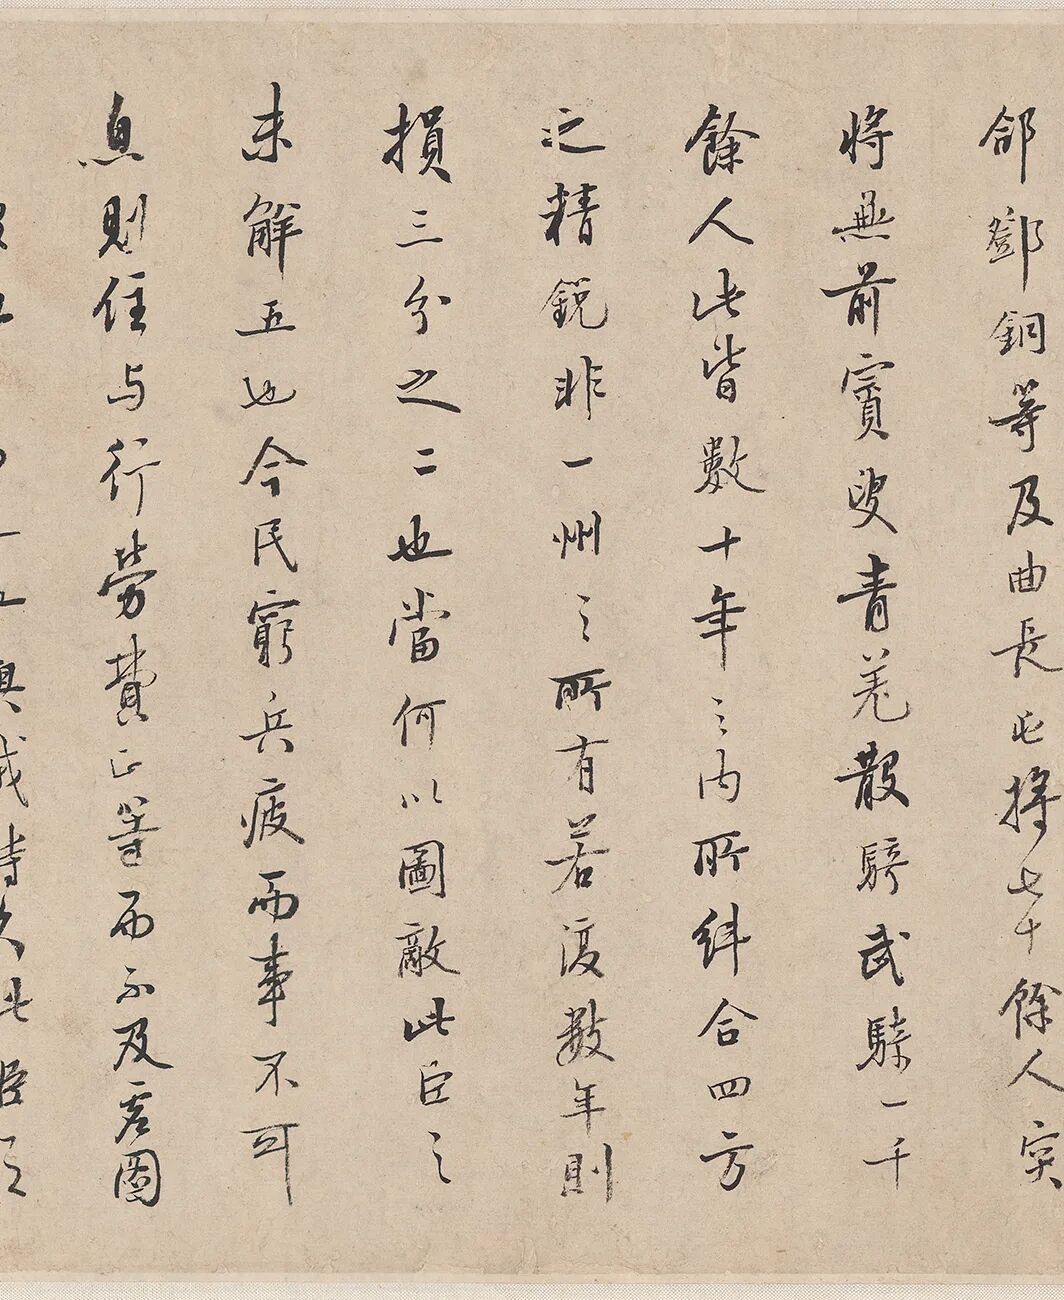 郃鄧銅等及曲長屯將七十餘人突
將無前賓叟青羌散騎武騎一千
餘人此皆數十年之內所糾合四方
之精銳非一州之所有若復數年則
損三分之二也當何以圖敵此臣之
未解五也今民窮兵疲而事不可
息則住与行勞費正等而不及虛圖